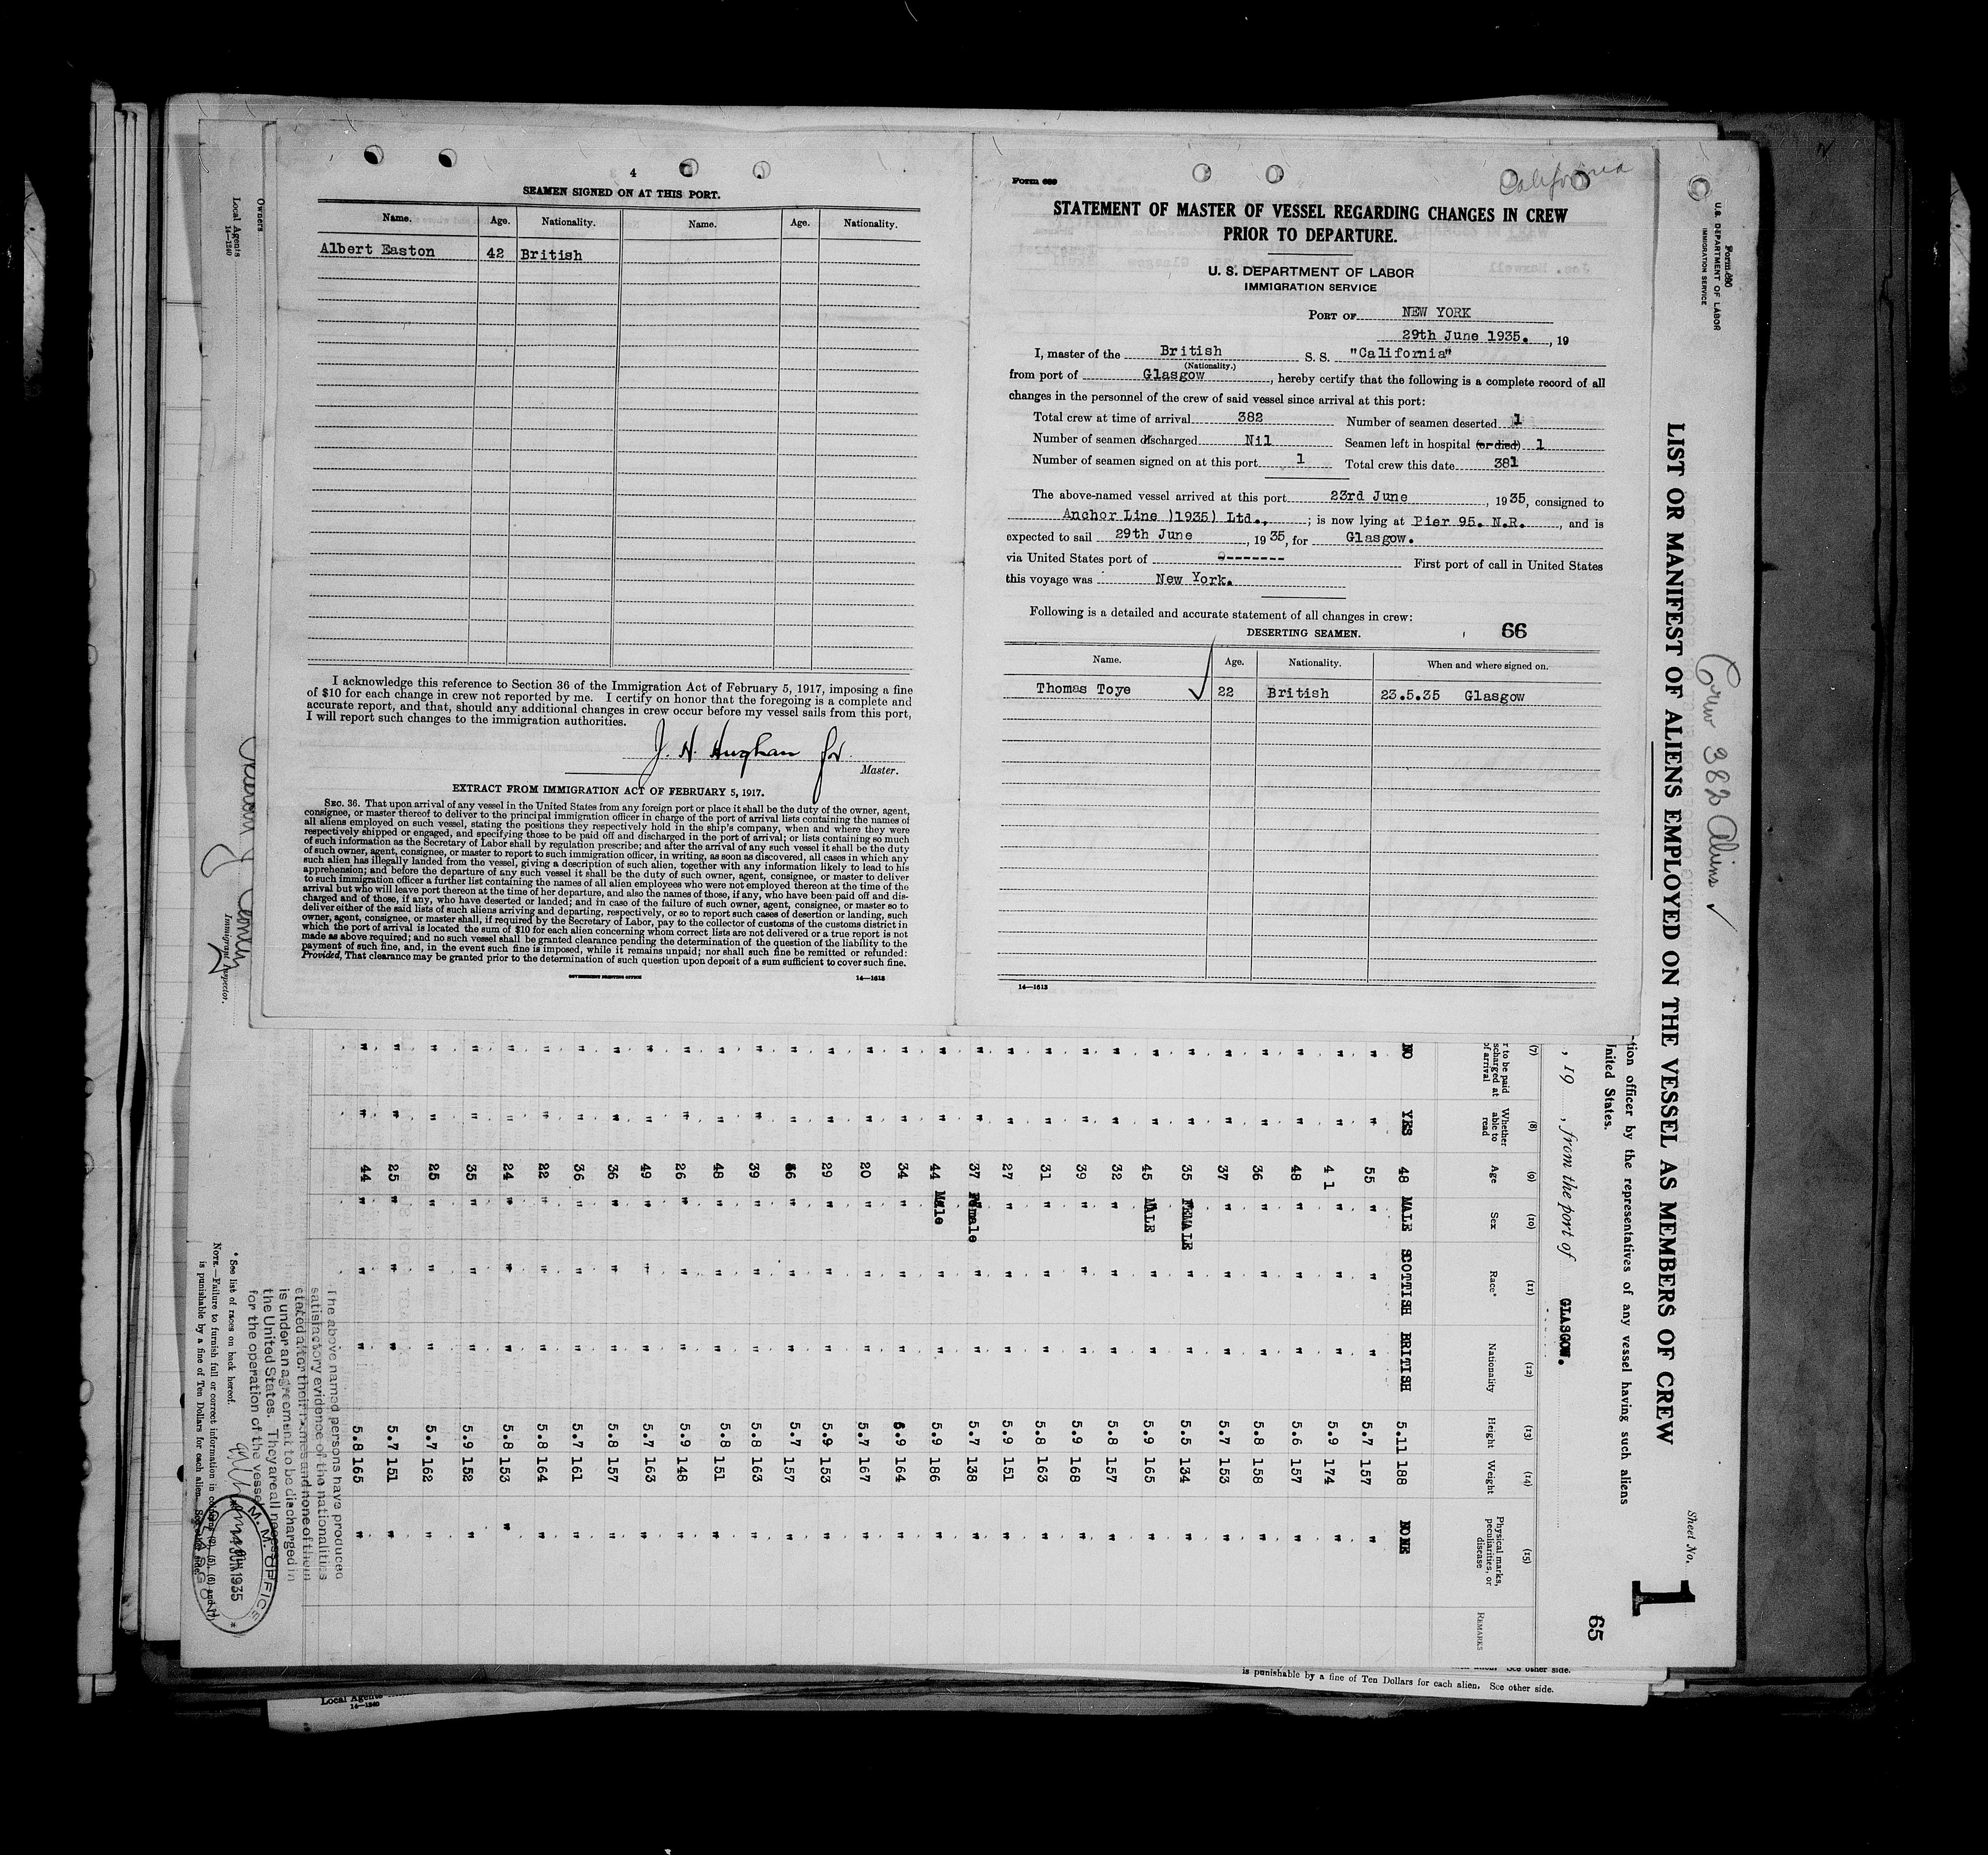 4
SEAMEN SIGNED ON AT THIS PORT.
Name. Age. Nationality. Name. Age. Nationality.
Albert Easton 42 British
I acknowledge this reference to Section 36 of the Immigration Act of February 5, 1917, imposing a fine
of $10 for each change in crew not reported by me. I certify on honor that the foregoing is a complete and
accurate report, and that, should any additional changes in crew occur before my vessel sails from this port,
I will report such changes to the immigration authorities.
J. H. Hughan for
Master.
EXTRACT FROM IMMIGRATION ACT OF FEBRUARY 5, 1917.
SEC. 36. That upon arrival of any vessel in the United States from any foreign port or place it shall be the duty of the owner, agent,
consignee, or master thereof to deliver to the principal immigration officer in charge of the port of arrival lists containing the names of
all aliens employed on such vessel, stating the positions they respectively hold in the ship's company, when and where they were
respectively shipped or engaged, and specifying those to be paid off and discharged in the port of arrival; or lists containing so much
of such information as the Secretary of Labor shall by regulation prescribe; and after the arrival of any such vessel it shall be the duty
of such owner, agent, consignee, or master to report to such immigration officer, in writing, as soon as discovered, all cases in which any
such alien has illegally landed from the vessel, giving a description of such alien, together with any information likely to lead to his
apprehension; and before the departure of any such vessel it shall be the duty of such owner, agent, consignee, or master to deliver
to such immigration officer a further list containing the names of all alien employees who were not employed thereon at the time of the
arrival but who will leave port thereon at the time of her departure, and also the names of those, if any, who have been paid off and dis-
charged and of those, if any, who have deserted or landed; and in case of the failure of such owner, agent, consignee, or master so to
deliver either of the said lists of such aliens arriving and departing, respectively, or so to report such cases of desertion or landing, such
owner, agent, consignee, or master shall, if required by the Secretary of Labor, pay to the collector of customs of the customs district in
which the port of arrival is located the sum of $10 for each alien concerning whom correct lists are not delivered or a true report is not
made as above required; and no such vessel shall be granted clearance pending the determination of the question of the liability to the
payment of such fine, and, in the event such fine is imposed, while it remains unpaid; nor shall such fine be remitted or refunded:
Provided, That clearance may be granted prior to the determination of such question upon deposit of a sum sufficient to cover such fine.
GOVERNMENT PRINTING OFFICE 14—1613
Form 689
California
STATEMENT OF MASTER OF VESSEL REGARDING CHANGES IN CREW
PRIOR TO DEPARTURE.
U. S. DEPARTMENT OF LABOR
IMMIGRATION SERVICE
PORT OF NEW YORK
29th June 1935. , 19
I, master of the British S. S. "California"
(Nationality.)
from port of Glasgow , hereby certify that the following is a complete record of all
changes in the personnel of the crew of said vessel since arrival at this port:
Total crew at time of arrival 382 Number of seamen deserted 1
Number of seamen discharged Nil Seamen left in hospital (or died) 1
Number of seamen signed on at this port 1 Total crew this date 381
The above-named vessel arrived at this port 23rd June , 1935, consigned to
Anchor Line )1935) Ltd., ; is now lying at Pier 95. N.R. , and is
expected to sail 29th June , 1935, for Glasgow.
via United States port of -------- First port of call in United States
this voyage was New York.
Following is a detailed and accurate statement of all changes in crew:
DESERTING SEAMEN. 66
Name. Age. Nationality. When and where signed on.
Thomas Toye 22 British 23.5.35 Glasgow
14—1613
Form 680
U.S. DEPARTMENT OF LABOR
IMMIGRATION SERVICE
Crew 382 Aliens
LIST OR MANIFEST OF ALIENS EMPLOYED ON THE VESSEL AS MEMBERS OF CREW
Sheet No. 1
tion officer by the representatives of any vessel having such aliens
United States.
65
, 19 , from the port of GLASGOW.
(7) (8) (9) (10) (11) (12) (13) (14) (15)
r to be paid scharged at of arrival Whether able to read Age Sex Race* Nationality Height Weight Physical marks, peculiarities, or disease REMARKS
NO YES 48 MALE SCOTTISH BRITISH 5.11 188 NONE
" " 55 " " " 5.7 157 "
" " 41 " " " 5.9 174 "
" " 48 " " " 5.6 157 "
" " 36 " " " 5.8 158 "
" " 37 " " " 5.7 153 "
" " 35 FEMALE " " 5.5 134 "
" " 45 MALE " " 5.9 165 "
" " 32 " " " 5.8 157 "
" " 39 " " " 5.9 168 "
" " 31 " " " 5.8 163 "
" " 27 " " " 5.9 151 "
" " 37 Female " " 5.7 138 "
" " 44 Male " " 5.9 186 "
" " 34 " " " 5.9 164 "
" " 20 " " " 5.7 167 "
" " 29 " " " 5.9 153 "
" " 56 " " " 5.7 157 "
" " 39 " " " 5.8 163 "
" " 48 " " " 5.8 151 "
" " 26 " " " 5.9 148 "
" " 49 " " " 5.7 163 "
" " 36 " " " 5.8 157 "
" " 36 " " " 5.7 161 "
" " 22 " " " 5.8 164 "
" " 24 " " " 5.8 153 "
" " 35 " " " 5.9 152 "
" " 25 " " " 5.7 162 "
" " 25 " " " 5.7 151 "
" " 44 " " " 5.8 165 "
The above named persons have produced
satisfactory evidence of the nationalities
stated after their names and none of them
is under an agreement to be discharged in
the United States. They are all necessary
for the operation of the vessel
* See list of races on back hereof.
NOTE.—Failure to furnish full or correct information in columns (2), (5), (6) and (7)
is punishable by a fine of Ten Dollars for each alien. See other side.
M. M. OFFICE
JUN 1935
GLASGOW
Immigrant Inspector.
Owners
Local Agents
14—1240
is punishable by a fine of Ten Dollars for each alien. See other side.
Local Agents
14—1240